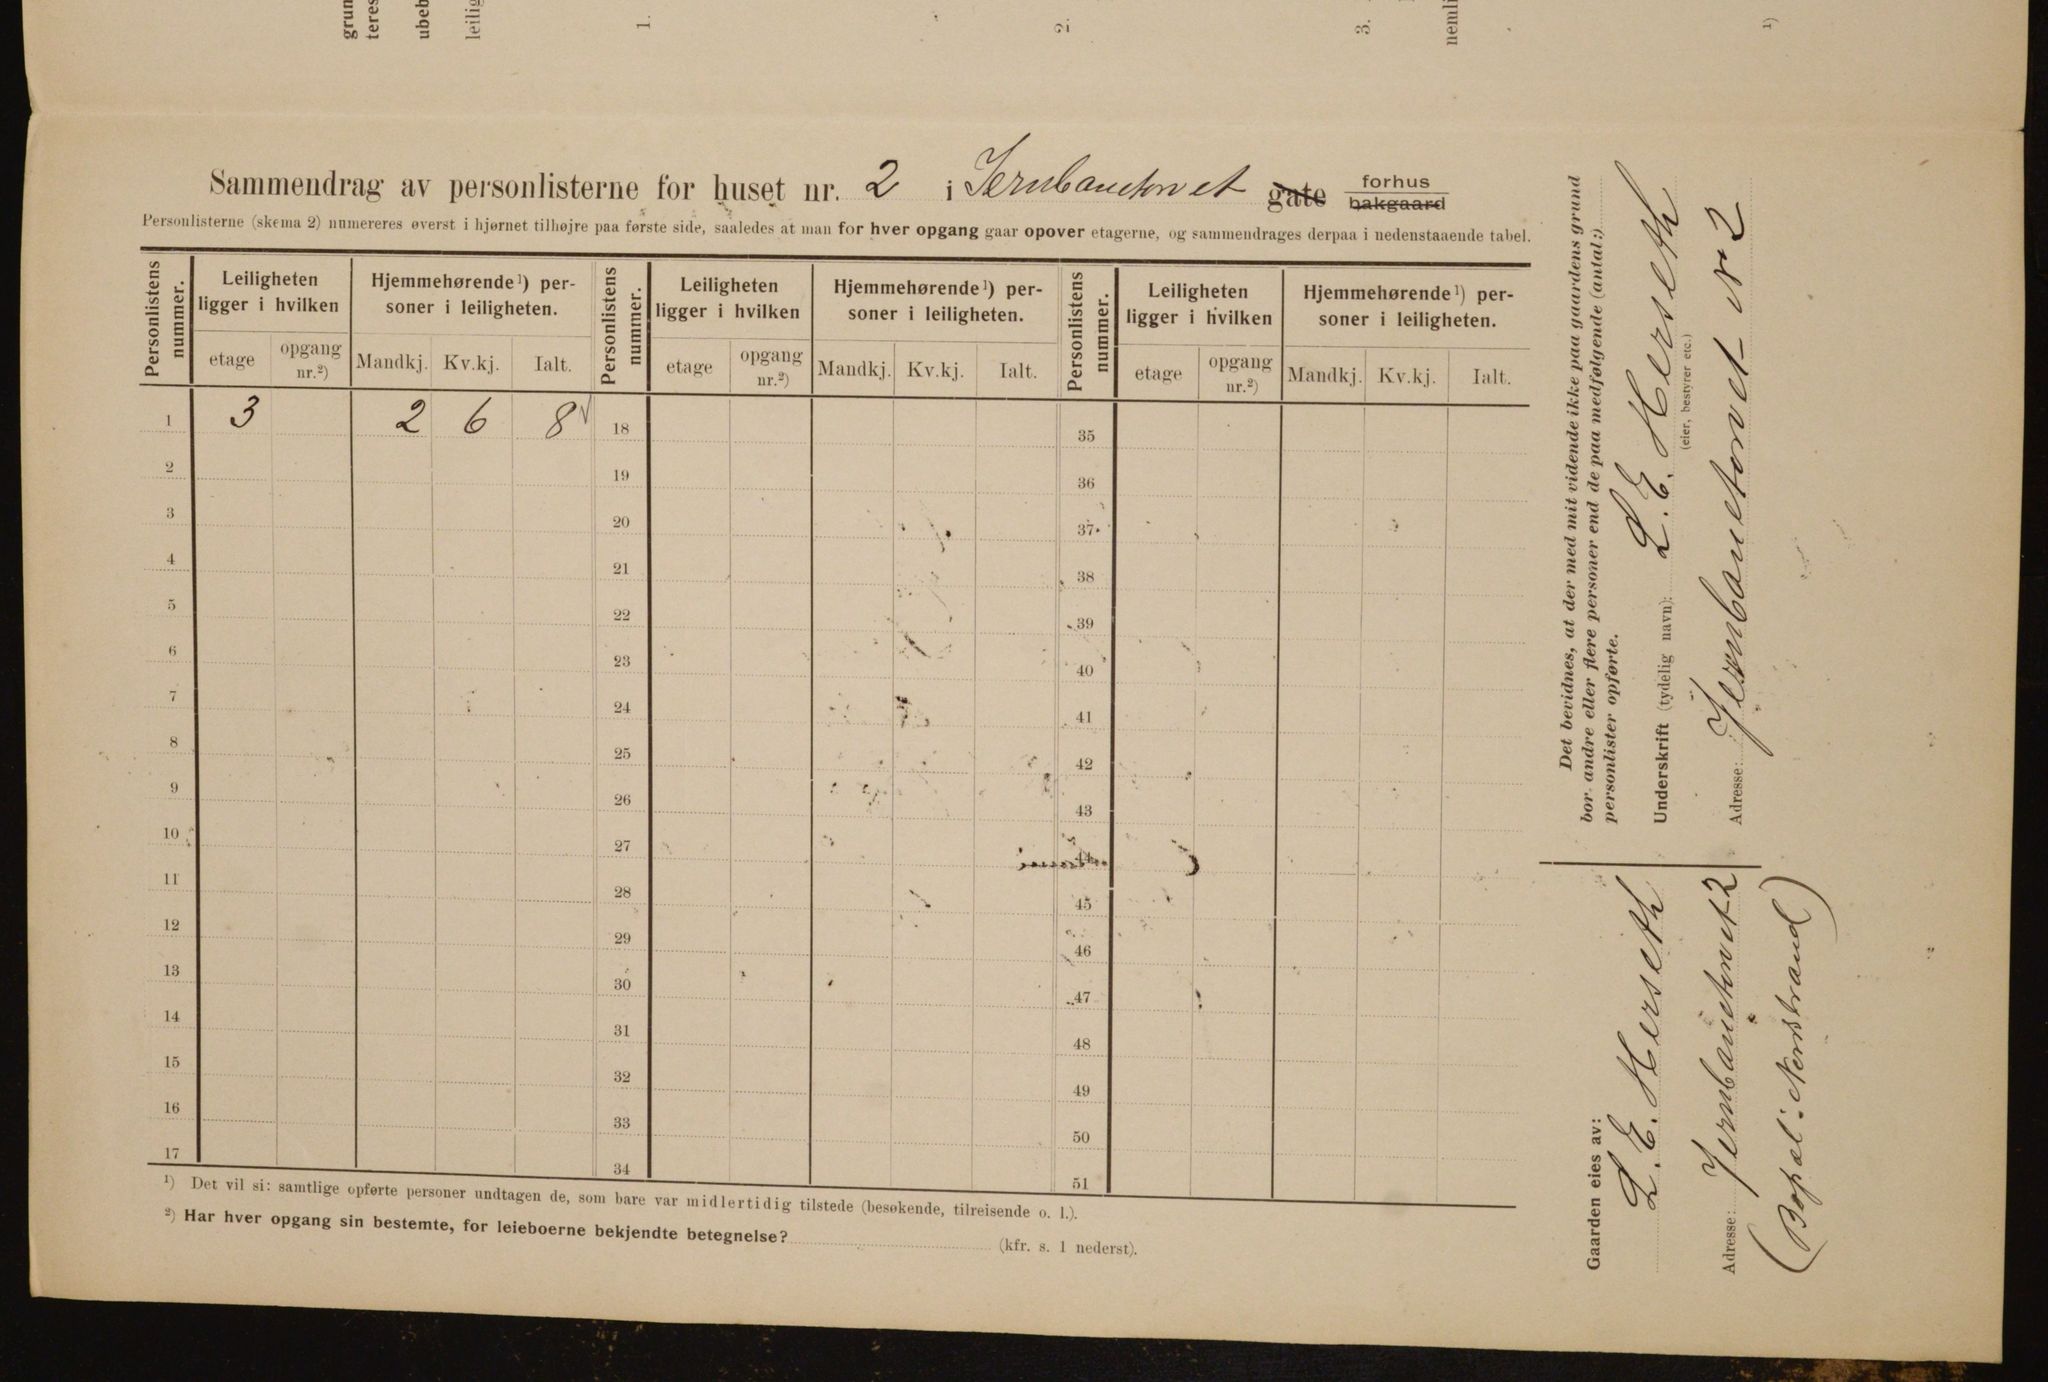 grun
teres
ubeb
leilig
1.
2.
3.
nemli
1)
Sammendrag av personlisterne for huset nr. 2 i Jernbanetorvet gate forhus bakgaard
Personlisterne (skema 2) numereres øverst i hjørnet tilhøjre paa første side, saaledes at man for hver opgang gaar opover etagerne, og sammendrages derpaa i nedenstaaende tabel.
Personlistens nummer. Leiligheten ligger i hvilken Hjemmehørende¹) personer i leiligheten. Personlistens nummer. Leiligheten ligger i hvilken Hjemmehørende¹) personer i leiligheten. Personlistens nummer. Leiligheten ligger i hvilken Hjemmehørende¹) personer i leiligheten.
etage opgang nr.²) Mandkj. Kv.kj. Ialt. etage opgang nr.²) Mandkj. Kv.kj. Ialt. etage opgang nr.²) Mandkj. Kv.kj. Ialt.
1 3 2 6 8 18 35
2 19 36
3 20 37
4 21 38
5 22 39
6 23 40
7 24 41
8 25 42
9 26 43
10 27 44
11 28 45
12 29 46
13 30 47
14 31 48
15 32 49
16 33 50
17 34 51
¹) Det vil si: samtlige opførte personer undtagen de, som bare var midlertidig tilstede (besøkende, tilreisende o. l.).
²) Har hver opgang sin bestemte, for leieboerne bekjendte betegnelse? (kfr. s. 1 nederst).
Det bevidnes, at der med mit vidende ikke paa gaardens grund
bor andre eller flere personer end de paa medfølgende (antal:)
personlister opførte.
Underskrift (tydelig navn): L. E. Herseth
(eier, bestyrer etc.)
Adresse: Jernbanetorvet № 2
Gaarden eies av:
L. E. Herseth
Adresse: Jernbanetorvet 2
(Bopæl: Nerstrand)